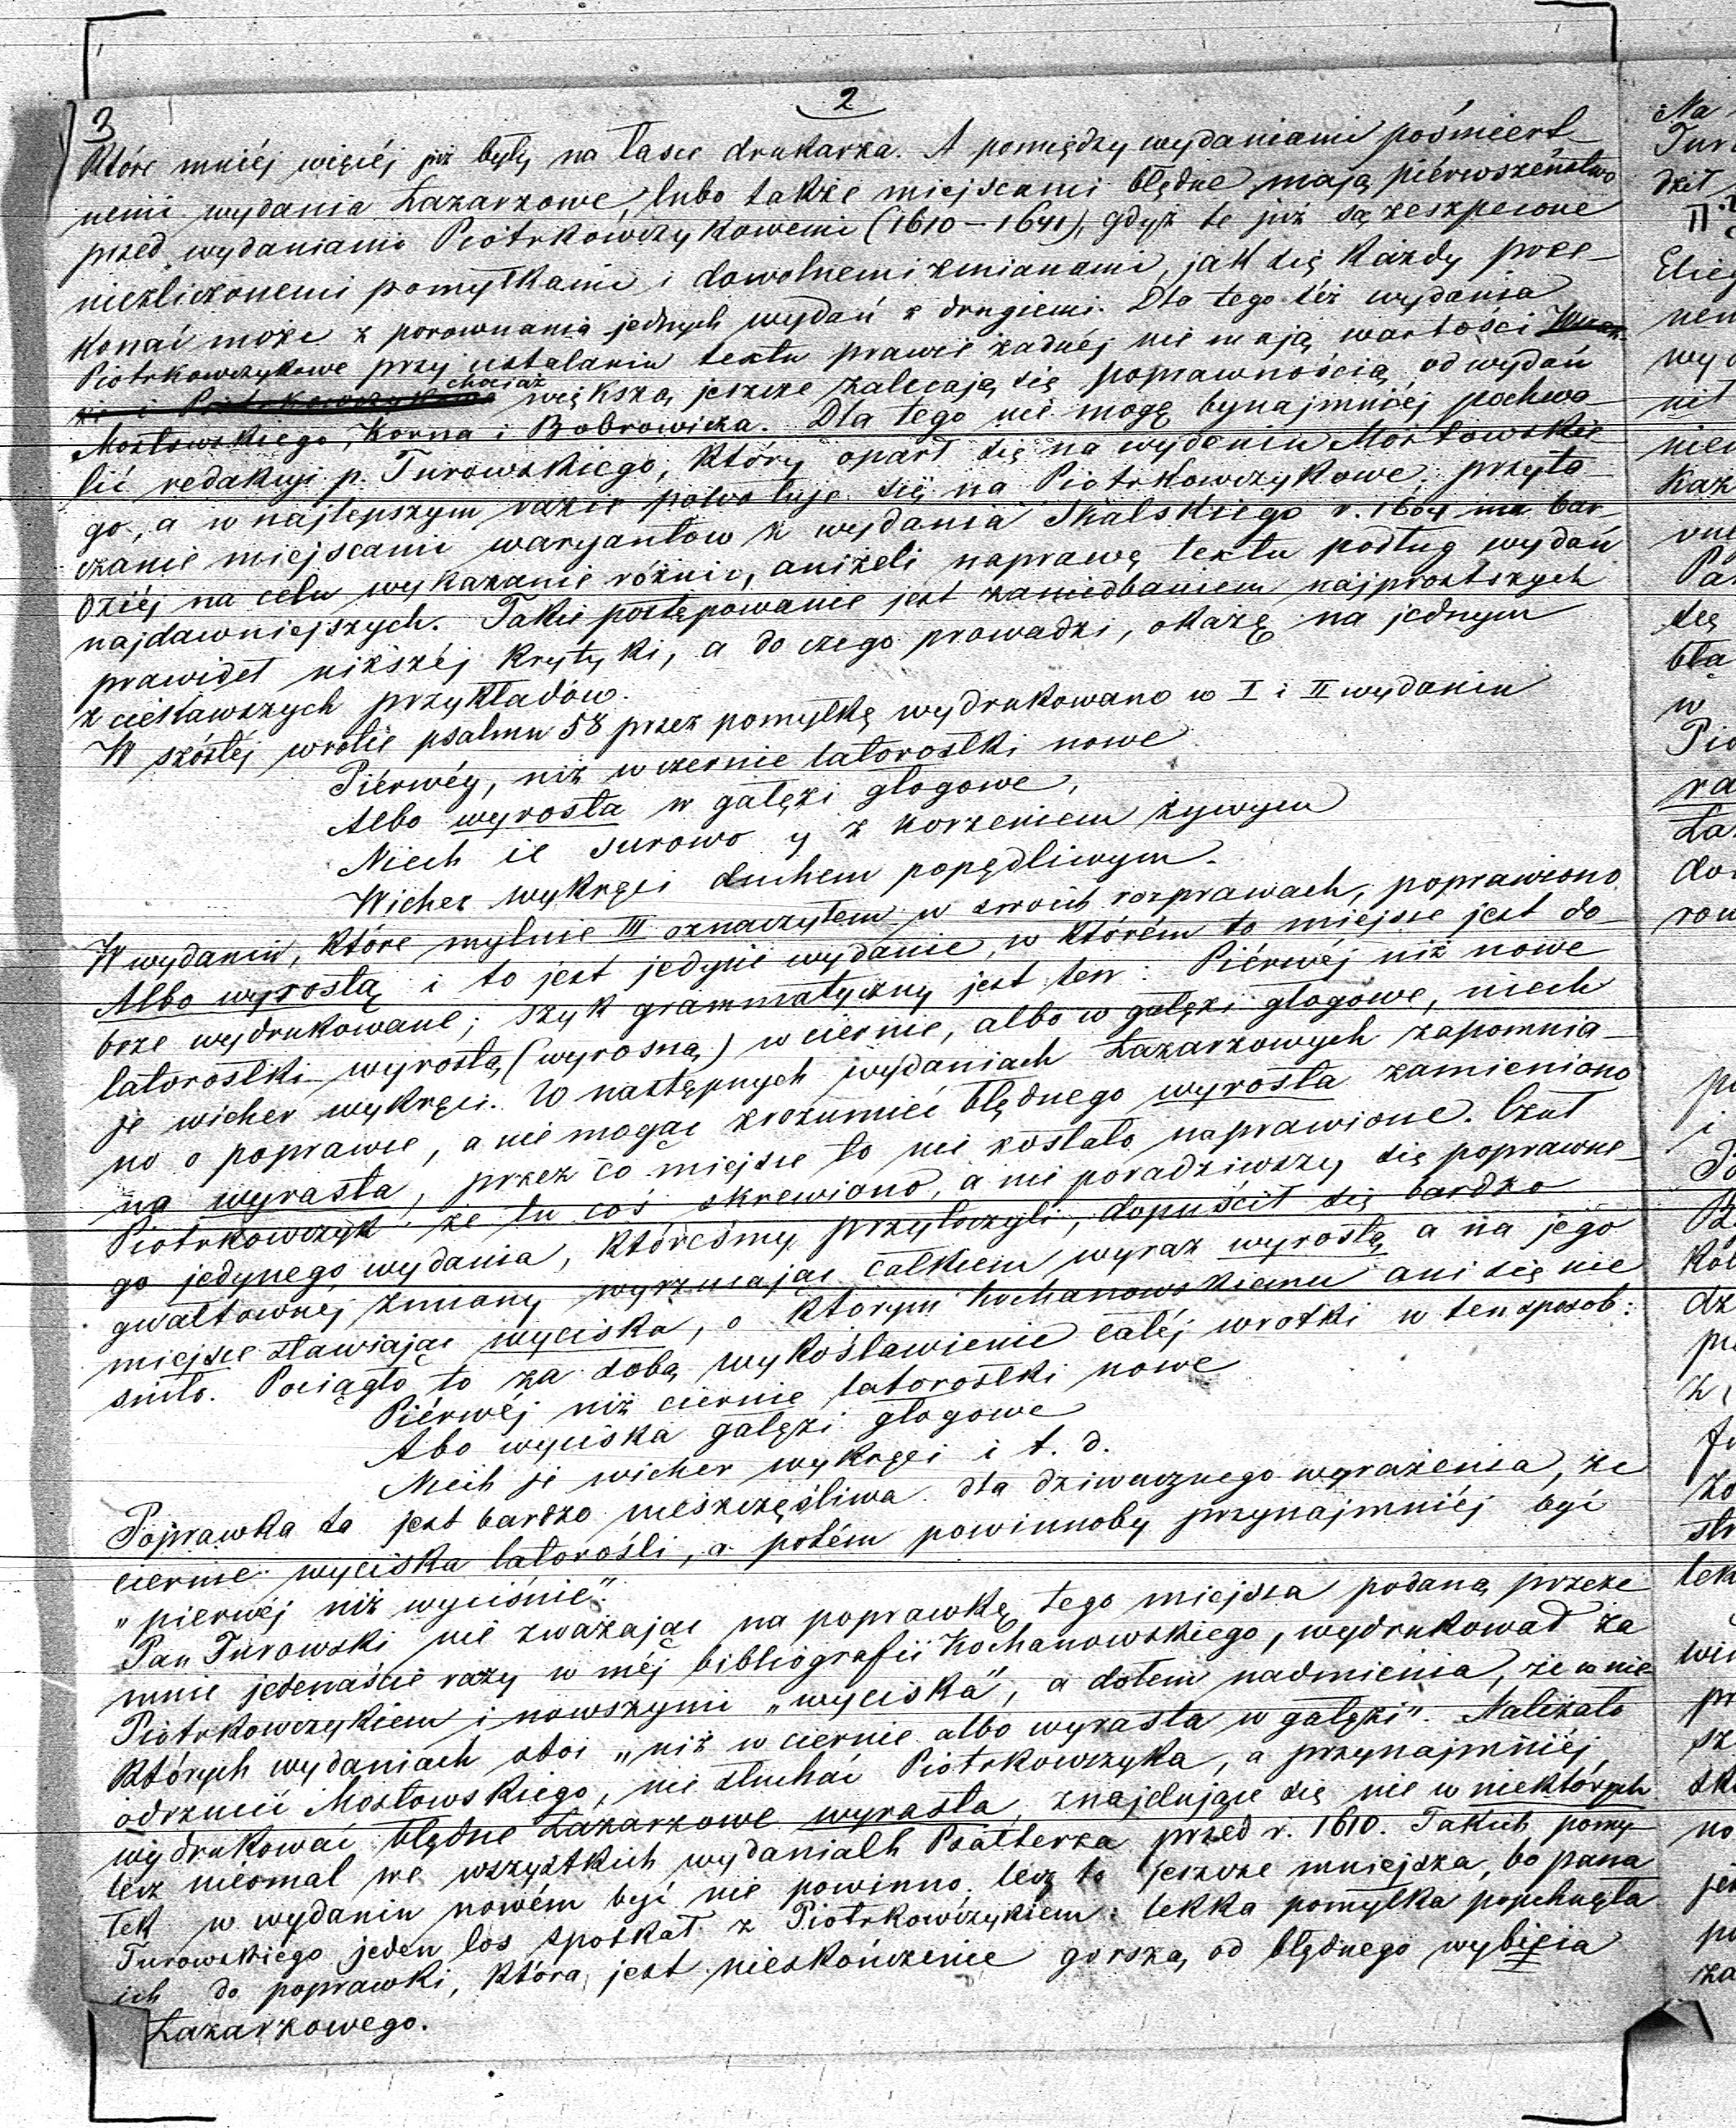 2
3
które mniéj więcéj już były na łasce drukarza. A pomiędzy wydaniami pośmiert-
nemi wydania Łazarzowe, lubo także miejscami błędne mają piérwszeństwo
przed wydaniami Piotrkowczykowemi (1610-1641), gdyż te już są zeszpecone
niezliczonemi pomyłkami i dowolnemi zmianami, jak się każdy prze-
konać może z porownania jednych wydań z drugiemi. Dla tego téż wydania
Piotrkowczykowe przy ustalaniu textu prawie żadnéj nie mają wartości
chociaż
większą jeszcze zalecają się poprawnością od wydań
Mostowskiego, Korna i Bobrowicza. Dla tego nie mogę bynajmniéj pochwa-
lić redakcyi p. Turowskiego, który oparł się na wydaniu Mostowskie-
go, a w najlepszym razie powołuje się na Piotrkowczykowe; przyta-
czanie miejscami waryantów z wydania Skalskiego r. 1604 ma bar-
dziéj na celu wykazanie różnic, aniżeli naprawę textu podług wydań
najdawniejszych. Takie postępowanie jest zaniedbaniem najprostszych
prawideł niższéj krytyki, a do czego prowadzi, okażę na jednym
z ciekawszych przykładów.
W szóstéj wrotce psalmu 58 przez pomyłkę wydrukowano w I i II wydaniu
Piérwéy, niż w czernie latorostki nowe
Albo wyrosta w gałęzi głogowe,
Niech ie surowo y z korzeniem żywym
Wicher wykręci duchem popędliwym.
W wydaniu, które mylnie III oznaczyłem w swoich rozprawach, poprawiono
Albo wyrostą i to jest jedyne wydanie, w którém to miejsce jest do-
brze wydrukowane; szyk grammatyczny jest ten: Piérwéj niż nowe
latorostki wyrostą (wyrosną) w ciernie, albo w gałęzi głogowe, niech
je wicher wykręci. W następnych wydaniach Łazarzowych zapomnia-
no o poprawce, a nie mogąc zrozumieć błędnego wyrosta zamieniono
na wyrasta, przez co miejsce to nie zostało naprawione. Czuł
Piotrkowczyk że tu coś skrewiono, a nie poradziwszy się poprawne-
go jedynego wydania, któreśmy przytoczyli, dopuścił się bardzo
gwałtownéj zmiany wyrzucając całkiem wyraz wyrostą a na jego
miejsce stawiając wyciska, o którym Kochanowskiemu ani się nie
śniło. Pociągło to za sobą wykoślawienie całéj wrotki w ten sposób:
Piérwéj niż ciernie latorostki nowe
Abo wyciska gałęzi głogowe
Niech je wicher wykręci i t. d.
Poprawka ta jest bardzo nieszczęśliwa dla dziwacznego wyrażenia, że
ciernie wyciska latorośli, a potém powinnoby przynajmniéj być
„pierwéj niż wyciśnie".
Pan Turowski nie zważając na poprawkę tego miejsca podaną przeze
mnie jedenaście razy w méj bibliografii Kochanowskiego, wydrukował za
Piotrkowczykiem i nowszymi „wyciska", a dołem nadmienia, że w nie-
których wydaniach stoi „niż w ciernie albo wyrasta w gałęzi". Należało
odrzucić Mostowskiego, nie słuchać Piotrkowczyka, a przynajmniéj
wydrukować błędne Łazarzowe wyrasta, znajdujące się nie w niektórych
lecz niemal we wszystkich wydaniach Psałterza przed r. 1610. Takich pomy-
łek w wydaniu nowém być nie powinno; lecz to jeszcze mniejsza, bo pana
Turowskiego jeden los spotkał z Piotrkowczykiem: lekka pomyłka popchnęła
ich do poprawki, która jest nieskończenie gorszą od błędnego wybicia
Łazarzowego.